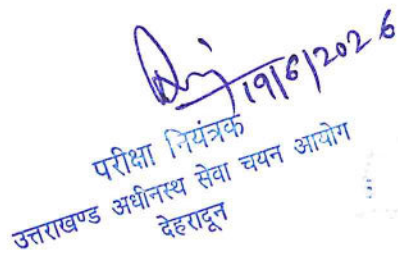 19/6/2026
परीक्षा नियंत्रक
उत्तराखण्ड अधीनस्थ सेवा चयन आयोग
देहरादून